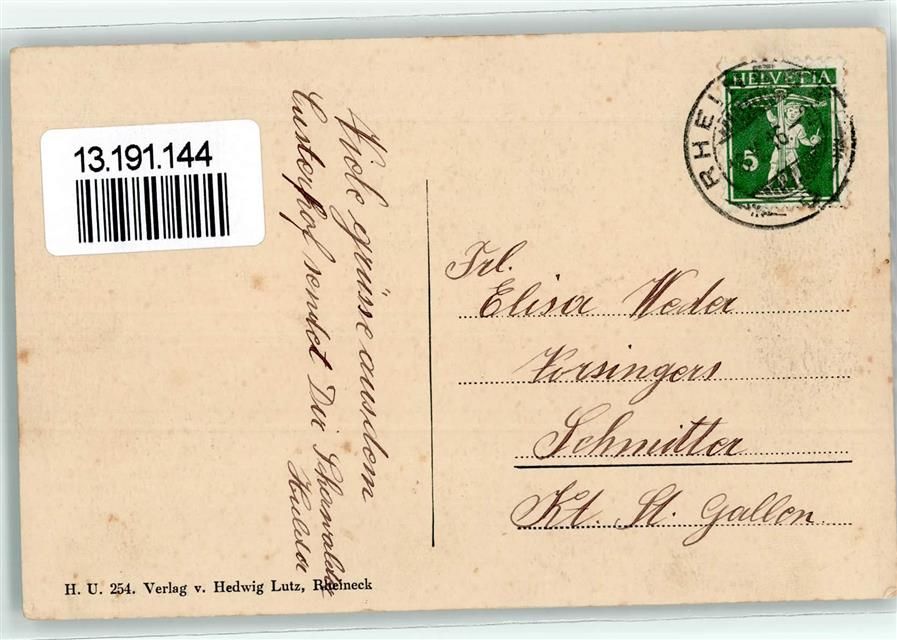 13.191.144
HELVETIA
5
RHEI
Viele grüsse aus dem
Custerhof sendet Dir
Hulda
Frl.
Elisa Weder
Vorsingers
Schmitter
Kt. St. Gallen.
H. U. 254. Verlag v. Hedwig Lutz, Rheineck